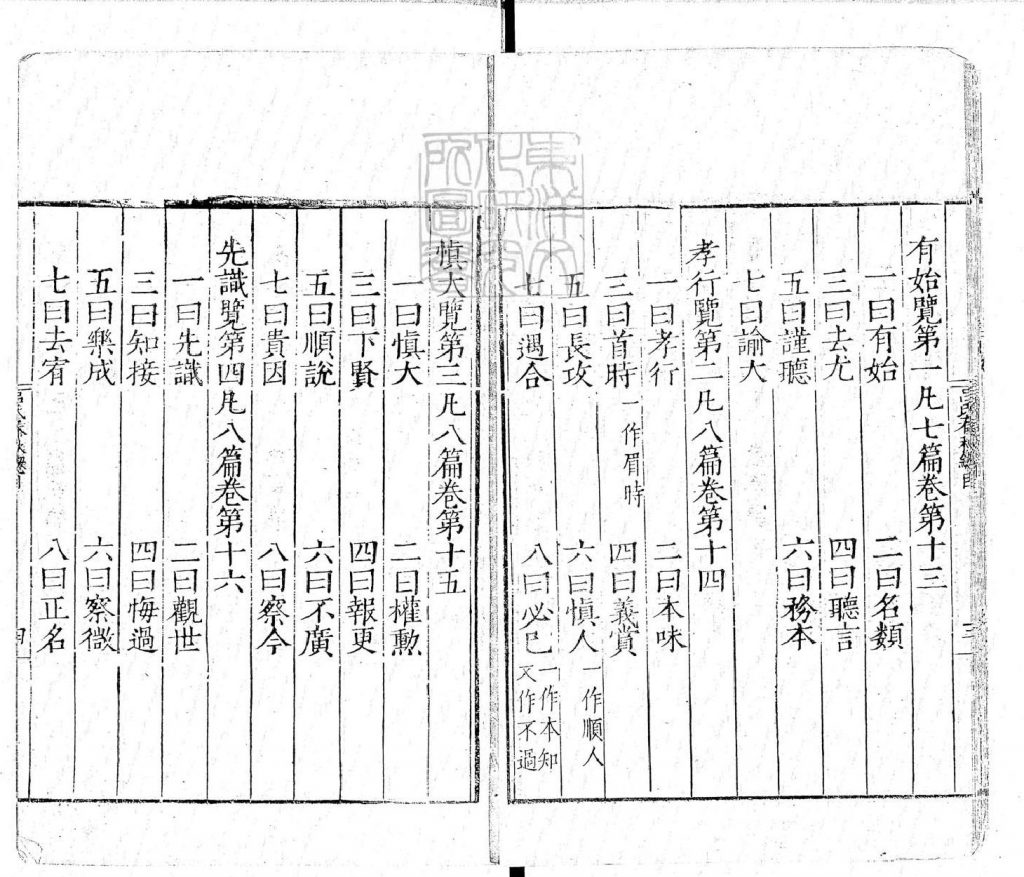 有始覽第一凡七篇卷第十三
一曰有始 二曰名類
三曰去尤 四曰聽言
五曰謹聽 六曰務本
七曰諭大
孝行覽第二凡八篇卷第十四
一曰孝行 二曰本味
三曰首時一作胥時 四曰義賞
五曰長攻 六曰慎人一作順人
七曰遇合 八曰必已一作本知又作不過
慎大覽第三凡八篇卷第十五
一曰慎大 二曰權勳
三曰下賢 四曰報更
五曰順說 六曰不廣
七曰貴因 八曰察今
先識覽第四凡八篇卷第十六
一曰先識 二曰觀世
三曰知接 四曰悔過
五曰樂成 六曰察微
七曰去宥 八曰正名
呂氏春秋總目
三
四
東洋文化研究所圖書